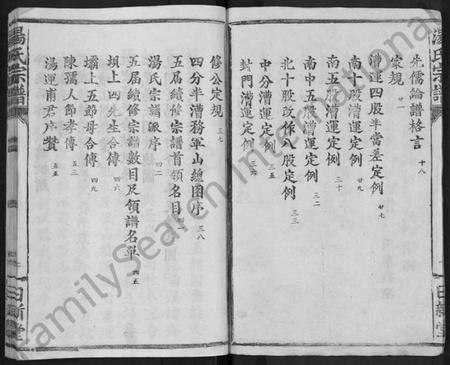 先儒論譜格言 十八
宗規 廿一
漕運四股半當差定例 廿七
南十股漕運定例 廿九
南五股漕運定例 三十
南中五股漕運定例 三二
北十股改作八股定例 三三
中分漕運定例
封門漕運定例 三六
修公定規 三七
四分半漕務軍山總圖序 三八
五届續修宗譜首領名目
湯氏宗譜派序 四二
五届續修宗譜數目及領譜名單 四五
垻上四先生合傳 四六
壩上五節母合傳 四九
陳孺人節孝傳 五三
湯運甫君序贊 五五
湯氏宗譜
日新堂
湯氏宗譜
日新堂
FamilySearch International